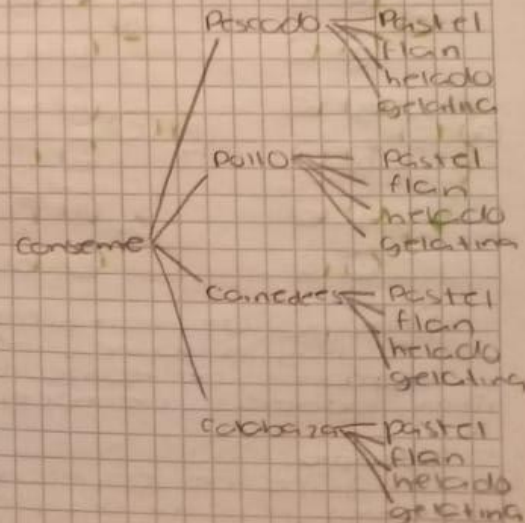 Pescado
Pastel
flan
helado
gelatina
Pollo
Pastel
flan
helado
gelatina
conseme
Pastel
flan
helado
gelatina
calabaza
pastel
flan
helado
gelatina